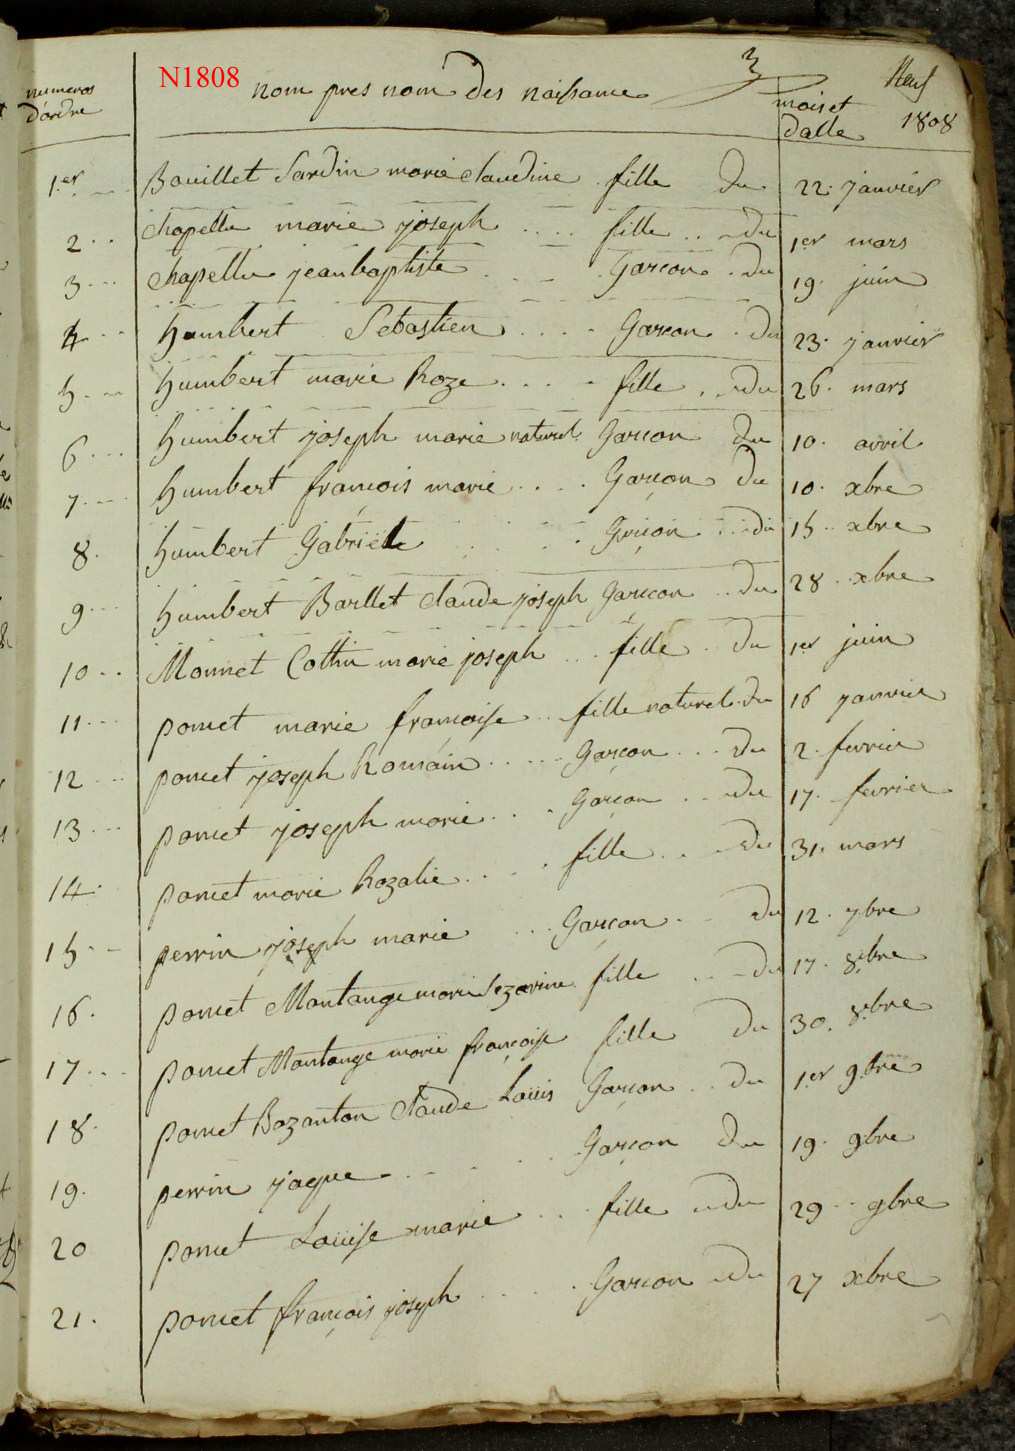 N1808
3
neuf
numeros d'ordre
nom pres nom des naissance
mois et datte
1808
1.er Bouillet Sardin marie claudine fille du 22. janvier
2 chapellu marie joseph fille du 1er mars
3 chapellu jean baptiste Garcon du 19. juin
4 humbert Sebastien Garcon du 23. janvier
5 humbert marie Roze fille du 26. mars
6 humbert joseph marie naturel Garcon du 10. avril
7 humbert françois marie Garçon du 10. xbre
8. humbert Gabriel Garçon du 15 xbre
9 humbert Barllet claude joseph Garcon du 28 xbre
10 Monnet Cottin marie joseph fille du 1er juin
11 poncet marie francoise fille naturel du 16 janvier
12 poncet joseph Romain Garçon du 2. fevrier
13 poncet joseph marie Garçon du 17. fevrier
14. poncet marie Rozalie fille du 31. mars
15 perrin joseph marie Garçon du 12. 7bre
16. poncet Montange marie Sezarine fille du 17. 8.bre
17 poncet Montange marie françoise fille du 30. 8.bre
18. poncet Bozanton Claude Louis Garçon du 1.er 9.bre
19. perrin jaque Garçon du 19. 9bre
20 poncet Louise marie fille du 29 9bre
21. poncet françois joseph Garcon du 27 xbre